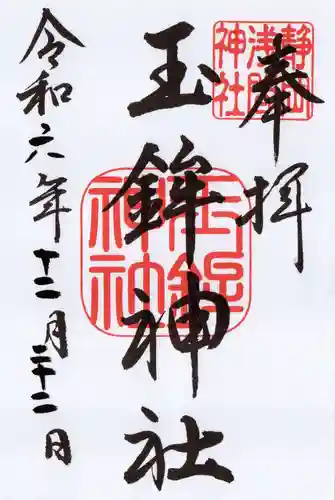 奉拝
静岡浅間神社
玉鉾神社
玉鉾神社
令和六年十二月二十二日